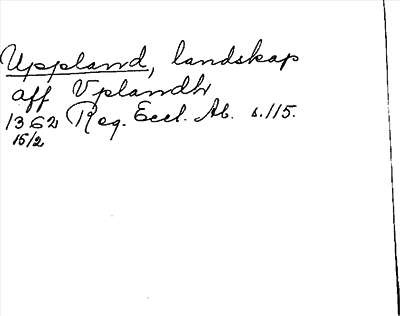 Uppland, landskap
aff Vplandh
1362 Reg. Eccl. Ab. s.115.
15/2